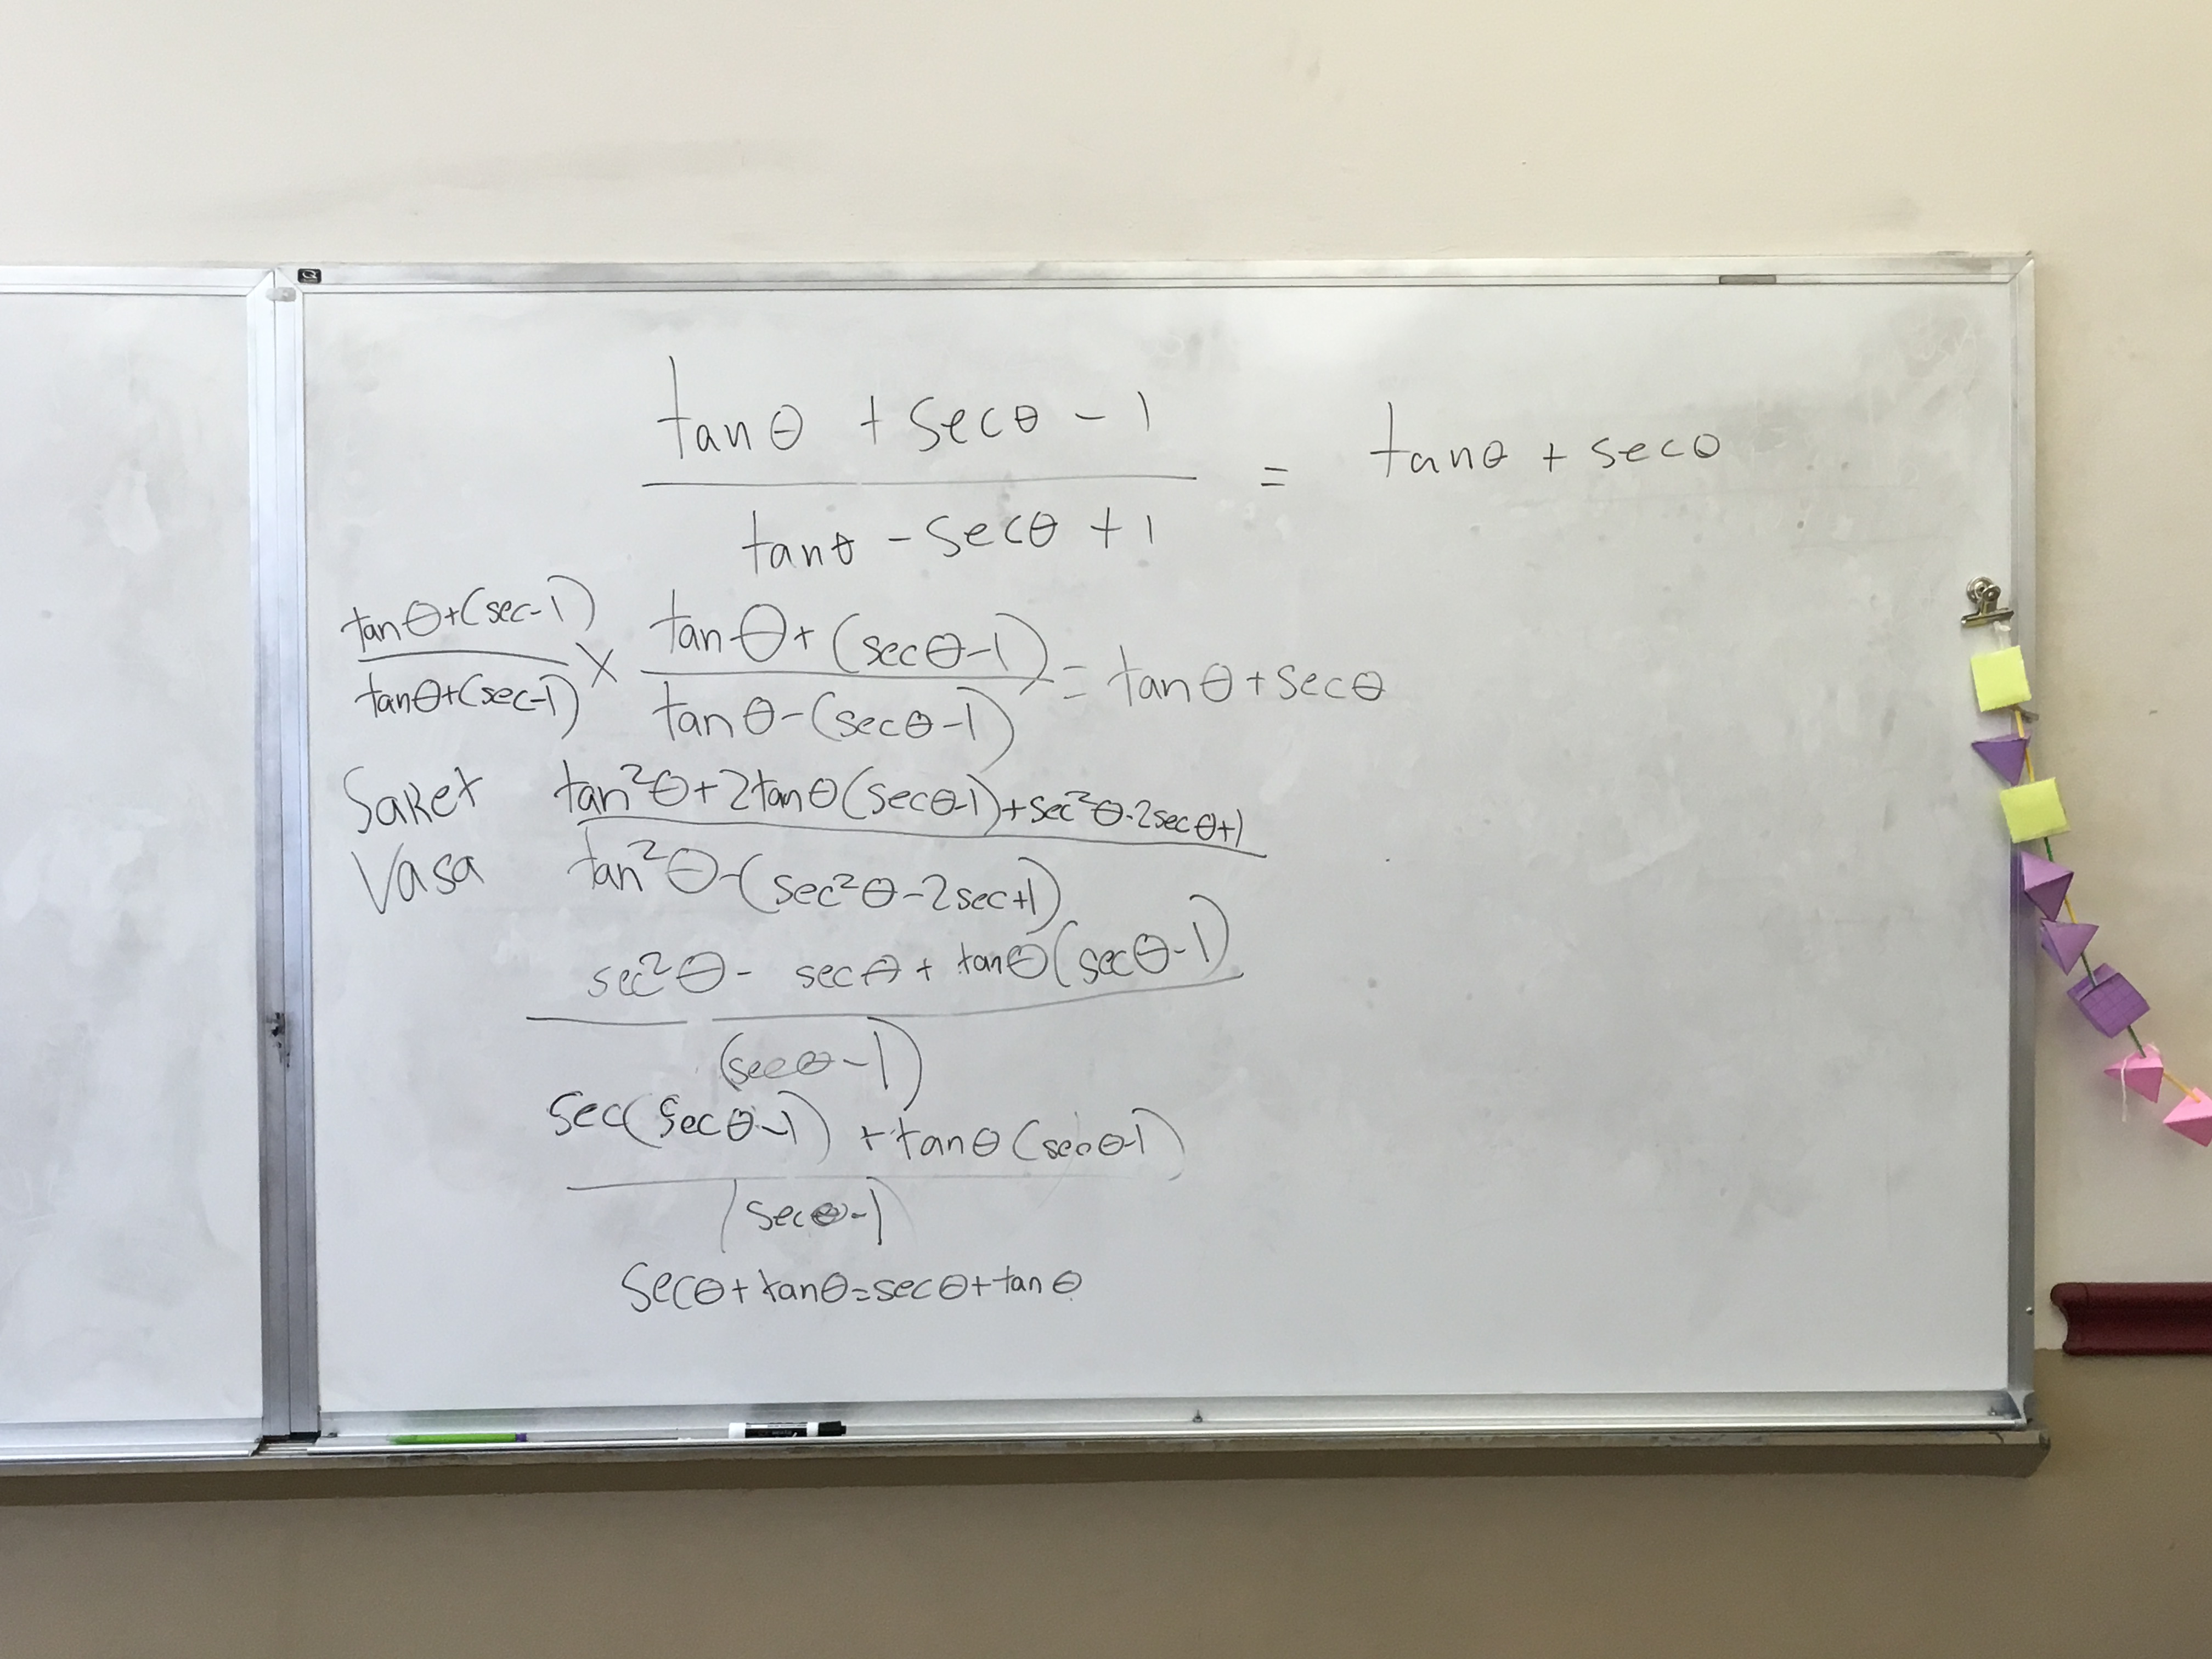 tanθ + secθ - 1
= tanθ + secθ
tanθ - secθ + 1
tanθ+(sec-1) × tanθ+(secθ-1) = tanθ+secθ
tanθ+(sec-1) tanθ-(secθ-1)
Saket tan²θ+2tanθ(secθ-1)+sec²θ-2secθ+1
Vasa tan²θ-(sec²θ-2sec+1)
sec²θ- secθ + tanθ(secθ-1)
(secθ-1)
sec(secθ-1) + tanθ(secθ-1)
(secθ-1)
secθ+tanθ=secθ+tanθ